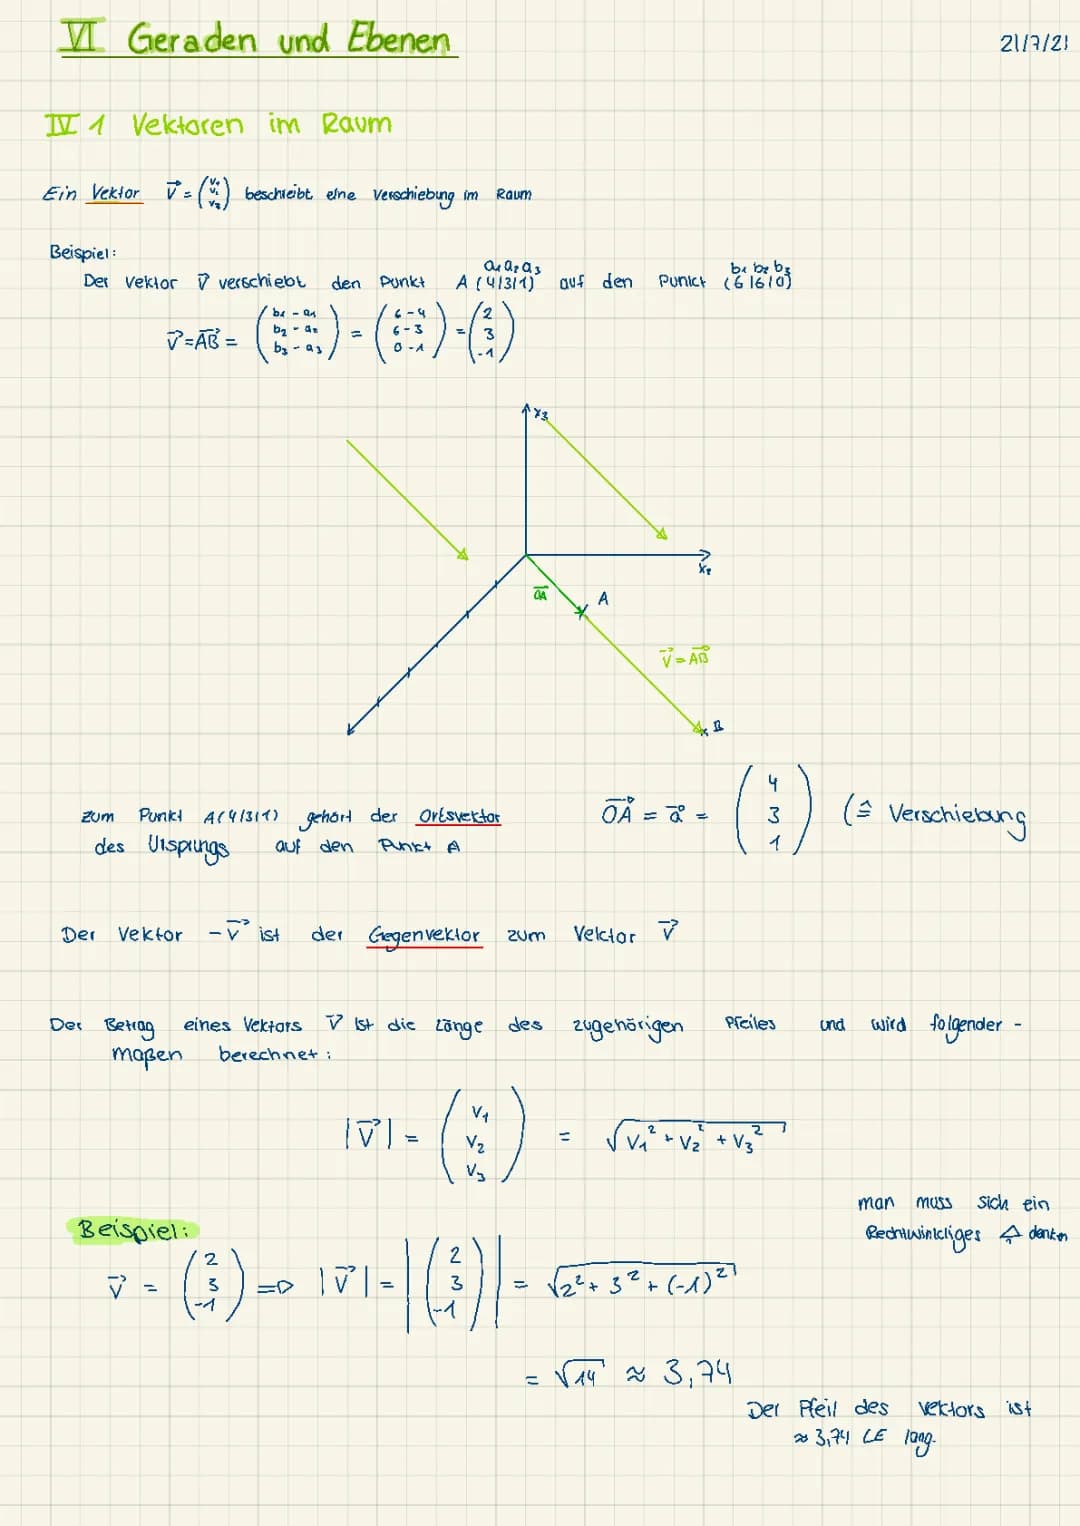 VI Geraden und Ebenen
21/7/21
IV 1 Vektoren im Raum
Ein Vektor v⃗ = (v₁ v₂ v₃) beschreibt eine Verschiebung im Raum
Beispiel:
a₁ a₂ a₃ b₁ b₂ b₃
Der Vektor v⃗ verschiebt den Punkt A (4/3/1) auf den Punkt (6/6/0)
v⃗ = AB⃗ = (b₁ - a₁ b₂ - a₂ b₃ - a₃) = (6-4 6-3 0-1) = (2 3 -1)
x₃
x₂
OA⃗
A
v⃗ = AB⃗
B
zum Punkt A(4/3/1) gehört der Ortsvektor OA⃗ = a⃗ = (4 3 1) (≙ Verschiebung
des Ursprungs auf den Punkt A
Der Vektor -v⃗ ist der Gegenvektor zum Vektor v⃗
Der Betrag eines Vektors v⃗ ist die Länge des zugehörigen Pfeiles und wird folgender -
maßen berechnet:
|v⃗| = (v₁ v₂ v₃) = √v₁² + v₂² + v₃²
man muss sich ein
Rechtwinkliges △ denken
Beispiel:
v⃗ = (2 3 -1) => |v⃗| = |(2 3 -1)| = √2² + 3² + (-1)²
= √14 ≈ 3,74
Der Pfeil des Vektors ist
≈ 3,74 LE lang.